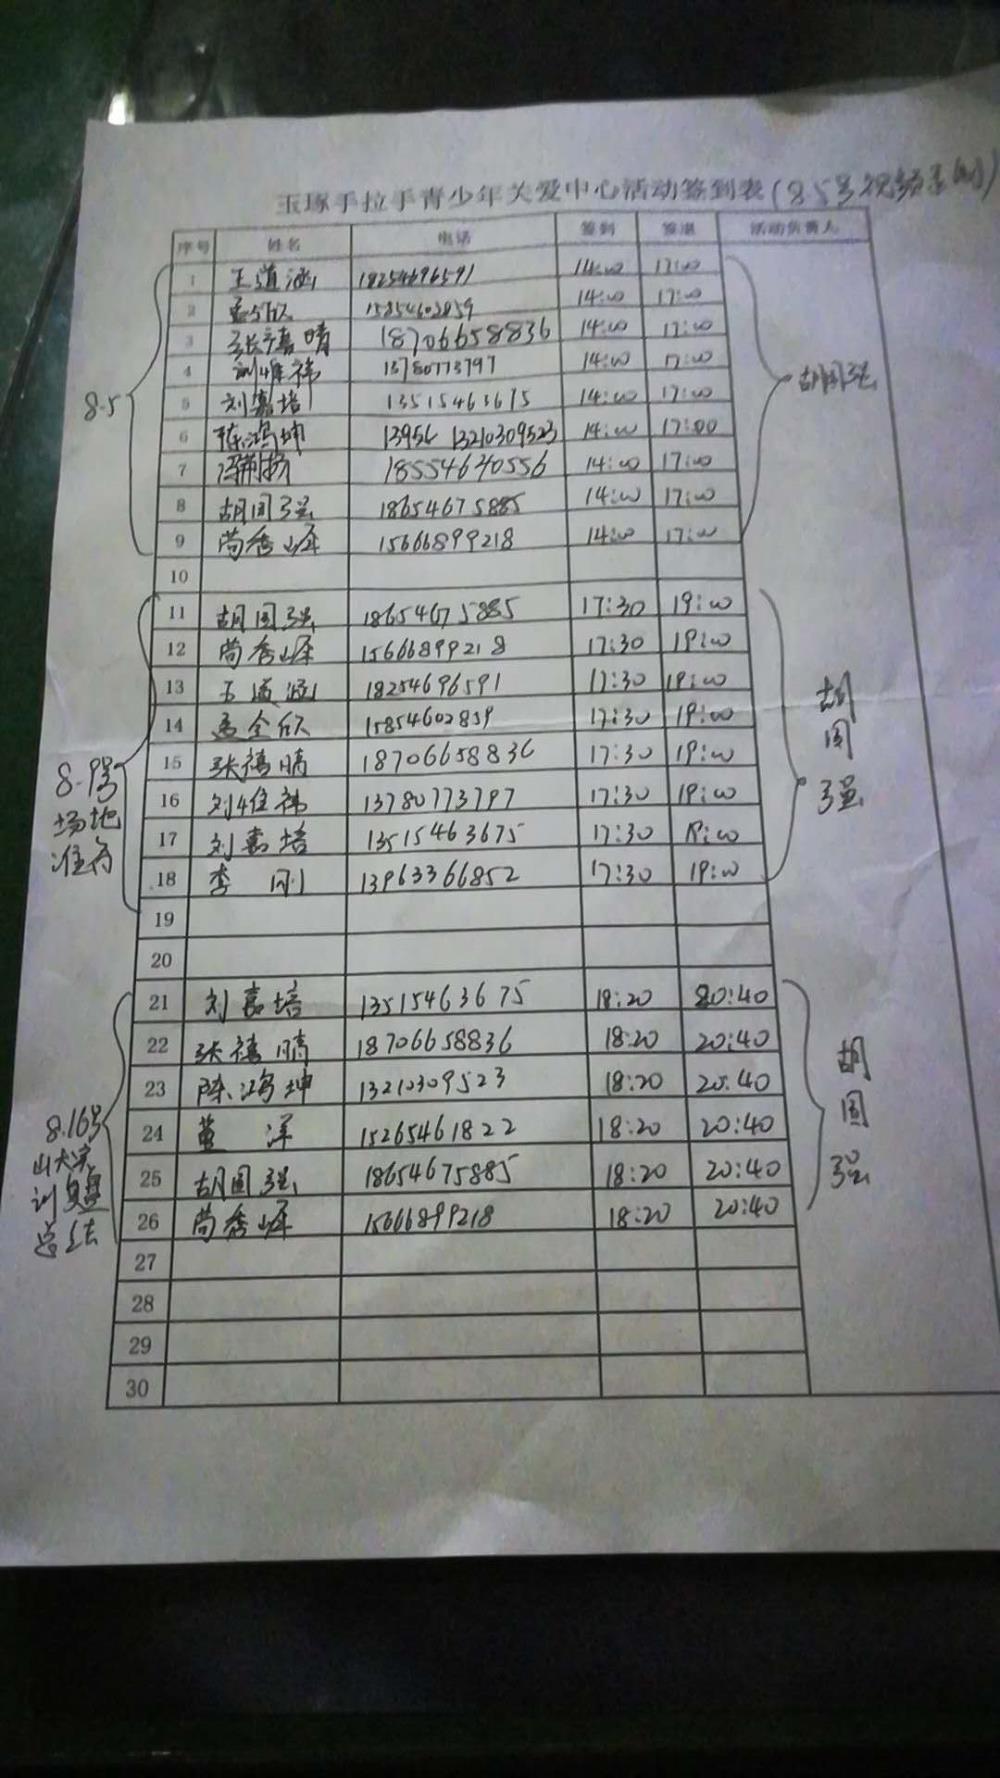 玉琢手拉手青少年关爱中心活动签到表(8.5号视频
序号 姓名 电话 签到 签退 活动负责人
8.5
1 王道涵 18254696591 14:00 17:00
2 15854602859 14:00 17:00
3 张禧晴 18706658836 14:00 17:00
4 刘维祎 13780773797 14:00 17:00
5 刘嘉培 13515463675 14:00 17:00
6 陈鸿坤 13956 13210309523 14:00 17:00
7 18554670556 14:00 17:00
8 胡国强 18654675885 14:00 17:00
9 尚秀峰 15666899218 14:00 17:00
胡国强
10
8.9号
场地
准备
11 胡国强 18654675885 17:30 19:00
12 尚秀峰 15666899218 17:30 19:00
13 王道涵 18254696591 17:30 19:00
14 孟全欣 15854602859 17:30 19:00
15 张禧晴 18706658836 17:30 19:00
16 刘维祎 13780773797 17:30 19:00
17 刘嘉培 13515463675 17:30 19:00
18 李刚 13963366852 17:30 19:00
胡
国
强
19
20
8.16号
山大实
训复盘
总结
21 刘嘉培 13515463675 18:20 80:40
22 张禧晴 18706658836 18:20 20:40
23 陈鸿坤 13210309523 18:20 20:40
24 董洋 15265461822 18:20 20:40
25 胡国强 18654675885 18:20 20:40
26 尚秀峰 15666899218 18:20 20:40
胡
国
强
27
28
29
30